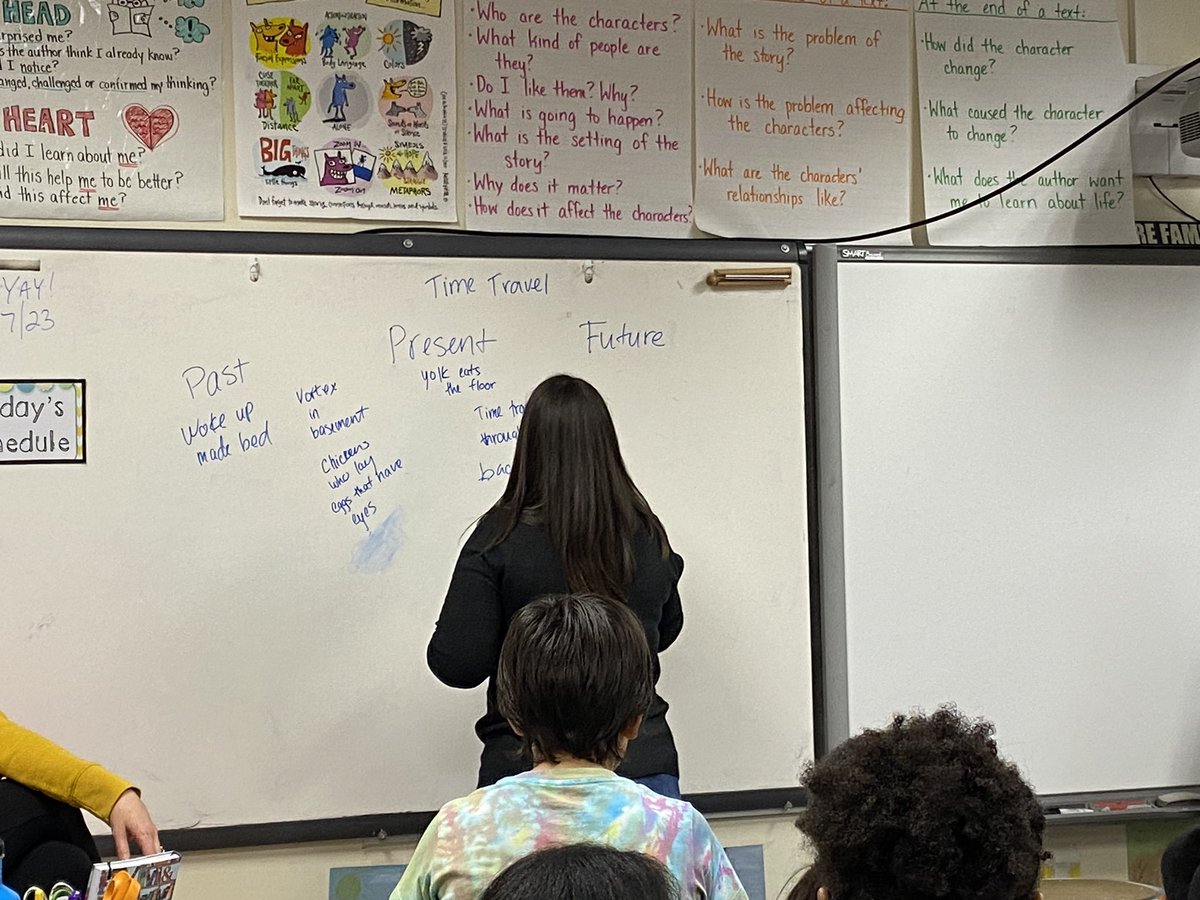 HEAD
rprised me?
s the author think I already know?
I notice?
anged, challenged or confirmed my thinking?
HEART
did I learn about me?
ll this help me to be better?
d this affect me?
Facial Expressions
Body Language
Colors
CLOSE TOGETHER
FAR APART
Distance
ALONE
Sounds or Words or Silence
BIG THINGS
Little things
ZOOM IN
Zoom out
SYMBOLS
METAPHORS
• Who are the characters?
• What kind of people are
they?
• Do I like them? Why?
• What is going to happen?
• What is the setting of the
story?
• Why does it matter?
• How does it affect the characters?
of a text:
• What is the problem of
the story?
• How is the problem affecting
the characters?
• What are the characters'
relationships like?
At the end of a text:
• How did the character
change?
• What caused the character
to change?
• What does the author want
me to learn about life?
RE FAM
SMART
YAY!
7/23
day's
hedule
Time Travel
Past
woke up
made bed
Vortex
in
basement
Chickens
who lay
eggs that have
eyes
Present
yolk eats
the floor
Time tra
throug
bac
Future